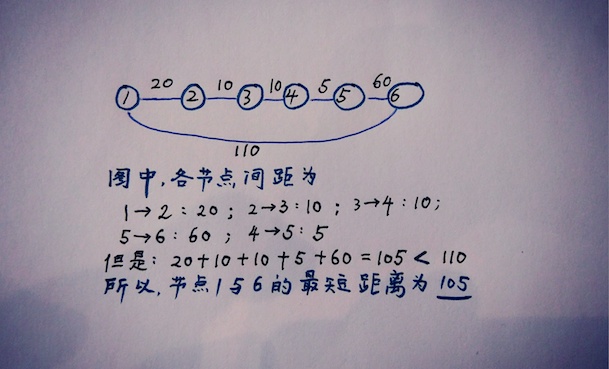 20 10 10 5 60
1 2 3 4 5 6
110
图中,各节点间距为
1→2:20; 2→3:10; 3→4:10;
5→6:60; 4→5:5
但是: 20+10+10+5+60=105<110
所以,节点1与6的最短距离为105